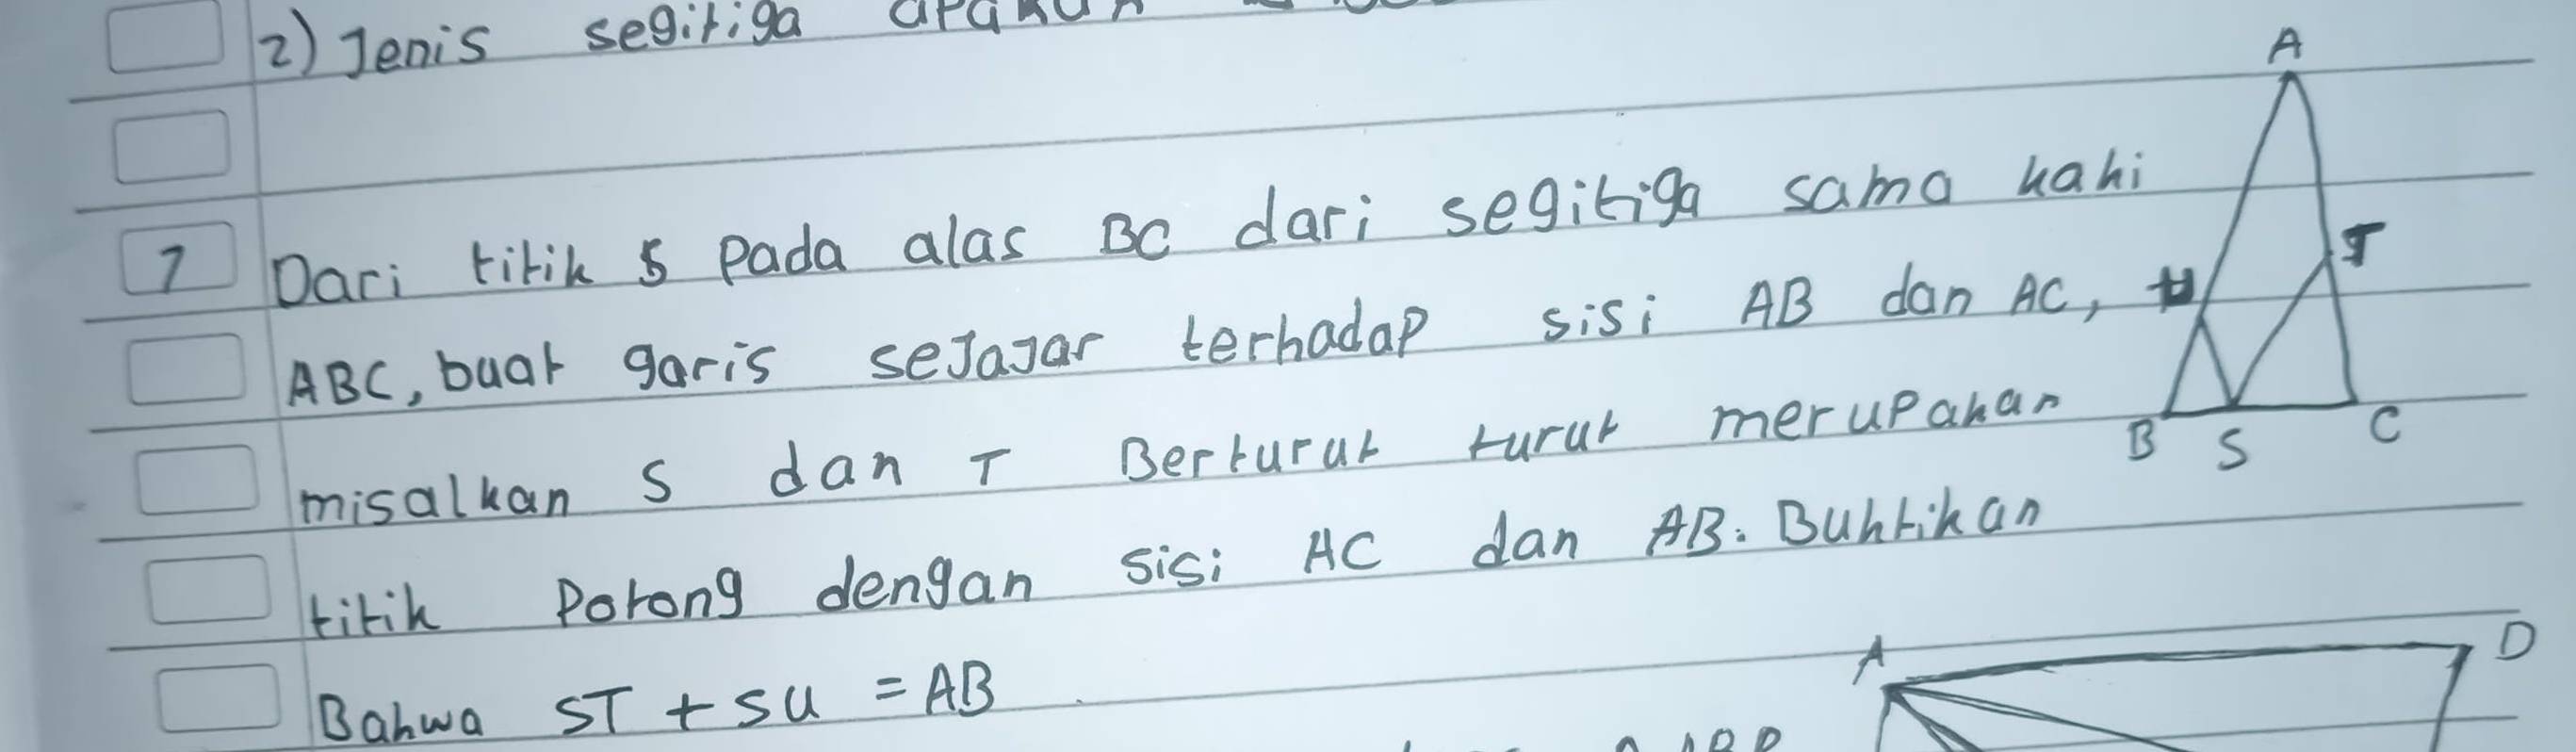 2) Jenis segitiga
A
7 Dari titik S pada alas BC dari segitiga sama kaki
T
ABC, buat garis sejajar terhadap sisi AB dan AC, U
misalkan S dan T Berturut turut merupakan
B S C
titik Potong dengan sisi AC dan AB. Buktikan
Bahwa ST + SU = AB
A D